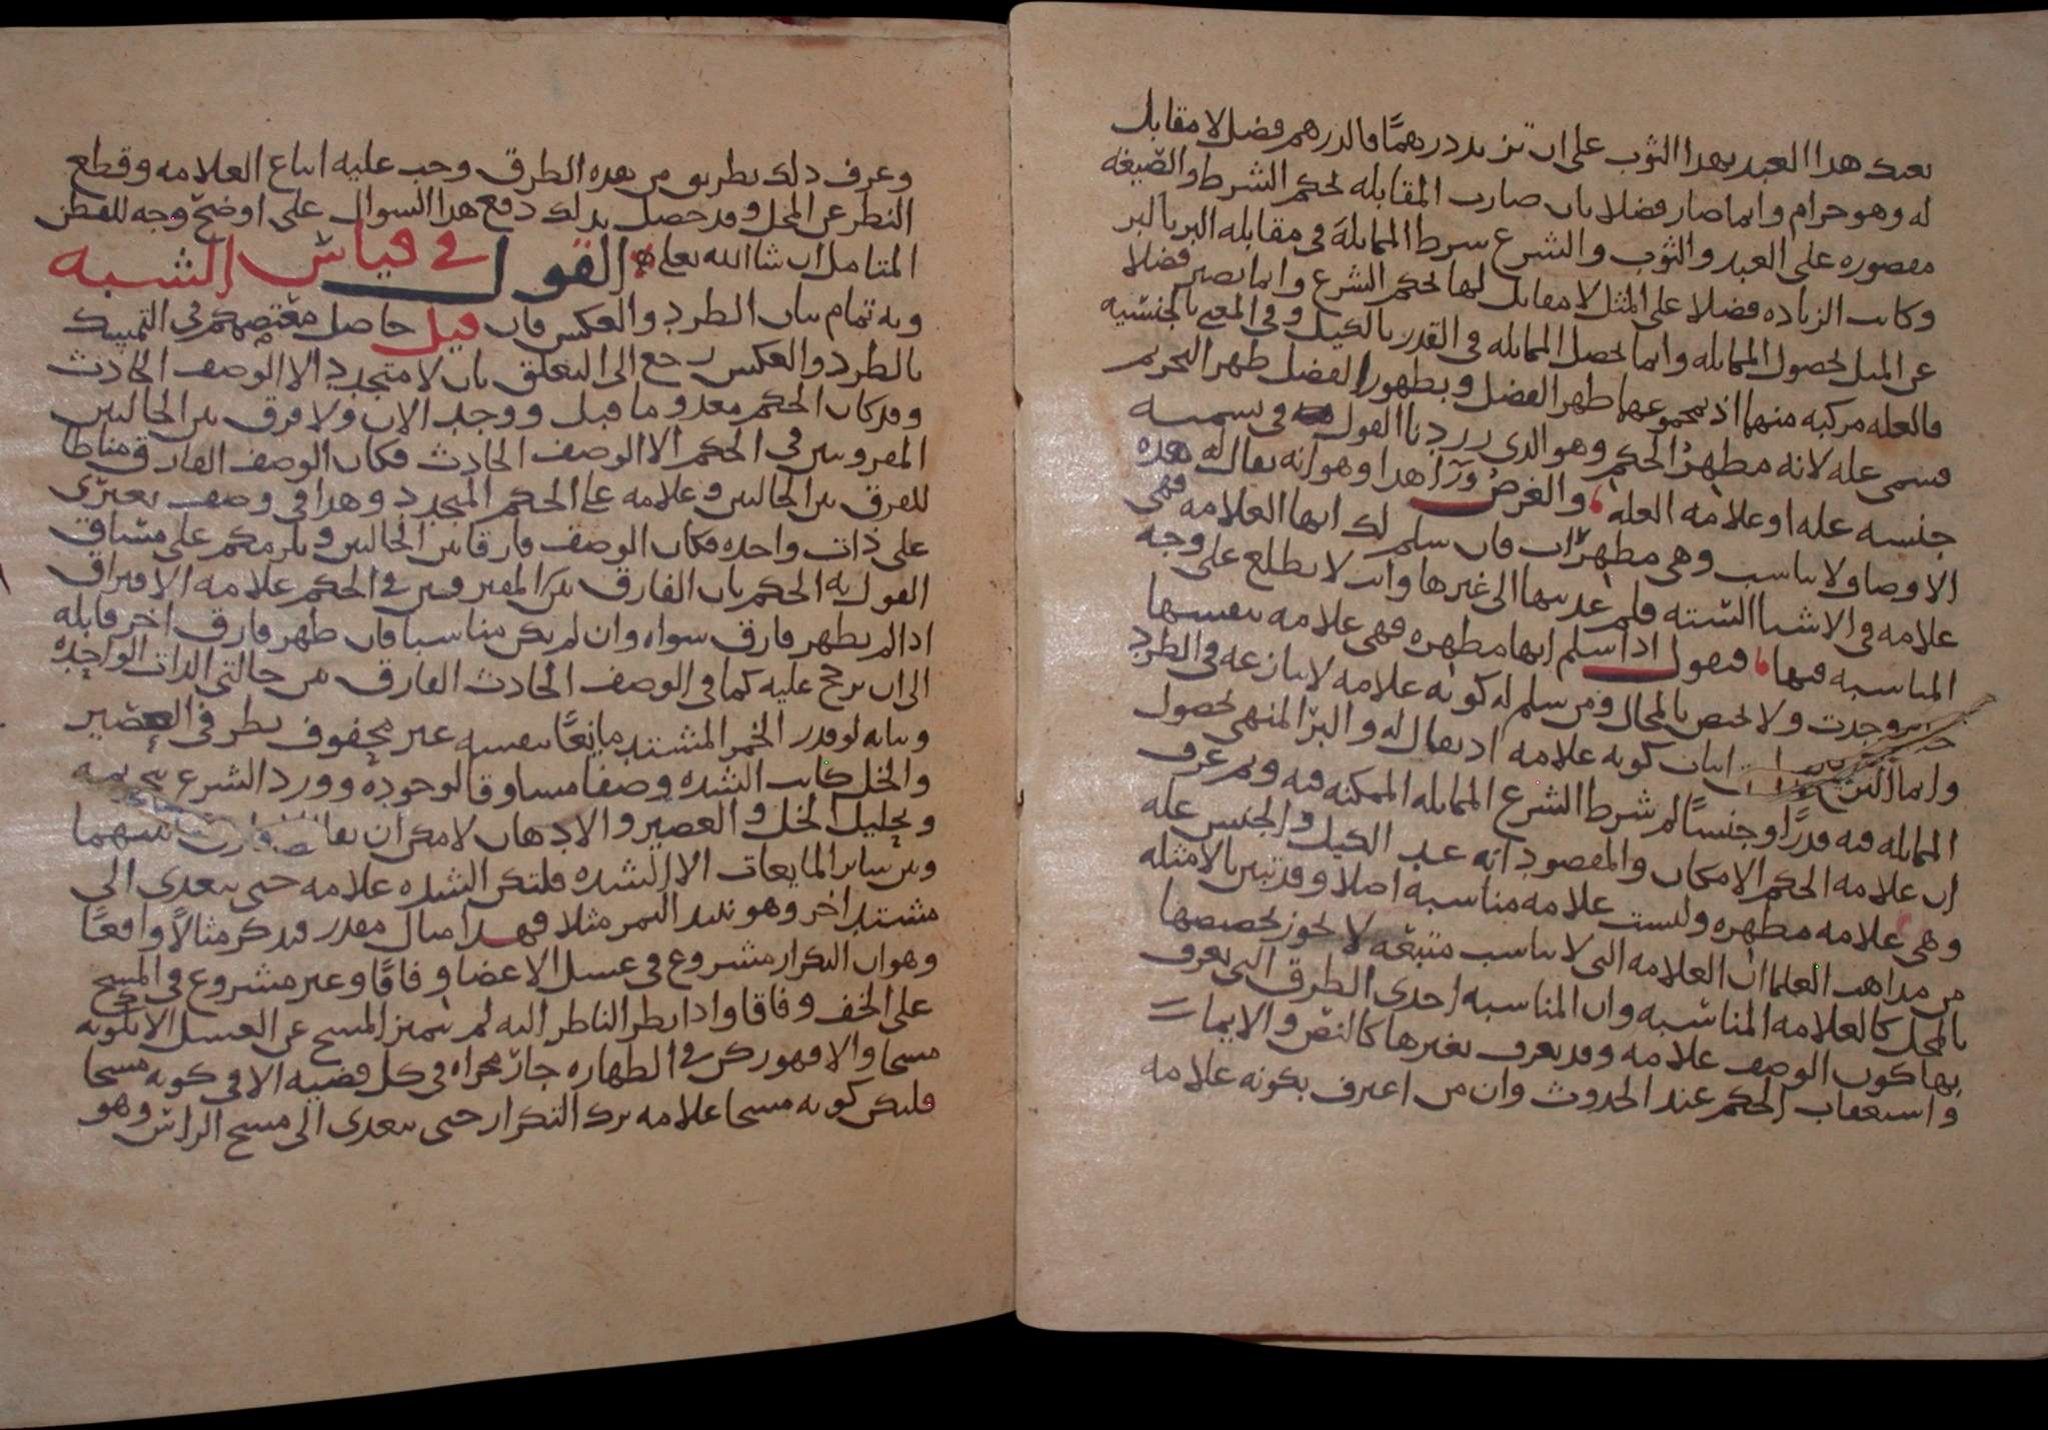 بعتك هذا العبد بهذا الثوب على ان تزيد درهمًا فالدرهم فضل لا مقابل
له وهو حرام وانما صار فضلا بان صارت المقابله بحكم الشرط والصيغه
مقصوره على العبد والثوب والشرع شرط المماثلة في مقابله البر بالبر
وكانت الزياده فضلا على المثل لا مقابل لها بحكم الشرع وانما تصير فضلا
عن المثل بحصول المماثله وانما تحصل المماثله في القدر بالكيل وفي المعنى بالجنسيه
فالعله مركبه منهما اذ بمجموعهما ظهر الفضل وبظهور الفضل ظهر التحريم
فسمى عله لانه مظهرُ الحكم وهو الذى رددنا القول في تسميه
جنسه عله او علامه العله والغرض ورآ هذا وهو انه يقال له هذه
الاوصاف لا تناسب وهى مظهرات فان سلم لك انها العلامه فهى
علامه في الاشيا الستة فلم عديتها الى غيرها وانت لا تطلع على وجه
المناسبه فيها فنقول اذا سلم انها مظهره فهى علامه بنفسها
وجدت ولا تختص بالمحال ومن سلم له كونه علامه لا ينازعه في الطرد
وانما اثبات كونه علامه اذ يقال له والبرّ المنهى بحصول
المماثله فيه قدرًا وجنسًا لم شرط الشرع المماثله الممكنه فيه وبم عرف
ان علامه الحكم الامكان والمقصود انه عند الكيل والجنس عله
وهى علامه مظهره وليست علامه مناسبه اصلا وقد تبين بالامثله
من مذاهب العلما ان العلامه التى لا تناسب متبعه لا يجوز تخصيصها
بالمحل كالعلامه المناسبه وان المناسبه احدى الطرق التى يعرف
بها كون الوصف علامه وقد يعرف بغيرها كالنص والايما
واستعقاب الحكم عند الحدوث وان من اعترف بكونه علامه
وعرف ذلك بطريق من هذه الطرق وجب عليه اتباع العلامه وقطع
النظر عن المحل وقد حصل بذلك دفع هذا السوال على اوضح وجه للفطن
المتامل ان شا الله تعالى القول في قياس الشبه
وبه تمام بيان الطرد والعكس فان قيل حاصل مقتضكم في التمسك
بالطرد والعكس رجع الى التعلق بان لا متجدد الا الوصف الحادث
وقد كان الحكم معدوما قبل ووجد الان ولا فرق بين الحالين
المفروضين في الحكم الا الوصف الحادث فكان الوصف الفارق مناطا
للفرق بين الحالين وعلامه على الحكم المتجدد وهذا في وصف يعترى
على ذات واحده فكان الوصف فارقا بين الحالين ويلزمكم على مساق
القول به الحكم بان الفارق بين المفترقين في الحكم علامه الافتراق
اذا لم يظهر فارق سواه وان لم يكن مناسبا فان ظهر فارق اخر قابله
الى ان يرجح عليه كما في الوصف الحادث الفارق من حالتى الذات الواحده
وبيانه لو قدر الخمر المشتد مايعًا بنفسه غير محفوف بطرفى العصير
والخل كانت الشده وصفا مساوقا لوجوده وورد الشرع بتحريمه
وتحليل الخل والعصير والادهان لامكن ان يقال بينهما
وبين ساير المايعات الا الشده فلتكن الشده علامه حتى يتعدى الى
مشتد اخر وهو نبيذ التمر مثلا فهذا مثال مقدر فنذكر مثالًا واقعًا
وهو ان التكرار مشروع في غسل الاعضا وفاقًا وغير مشروع في المسح
على الخف وفاقا واذا نظر الناظر اليه لم يتميز المسح عن الغسل الا بكونه
مسحا والا فهو ركن في الطهاره جار مجراه في كل قضيه الا في كونه مسحا
فليكن كونه مسحا علامه ترك التكرار حتى يتعدى الى مسح الراس وهو